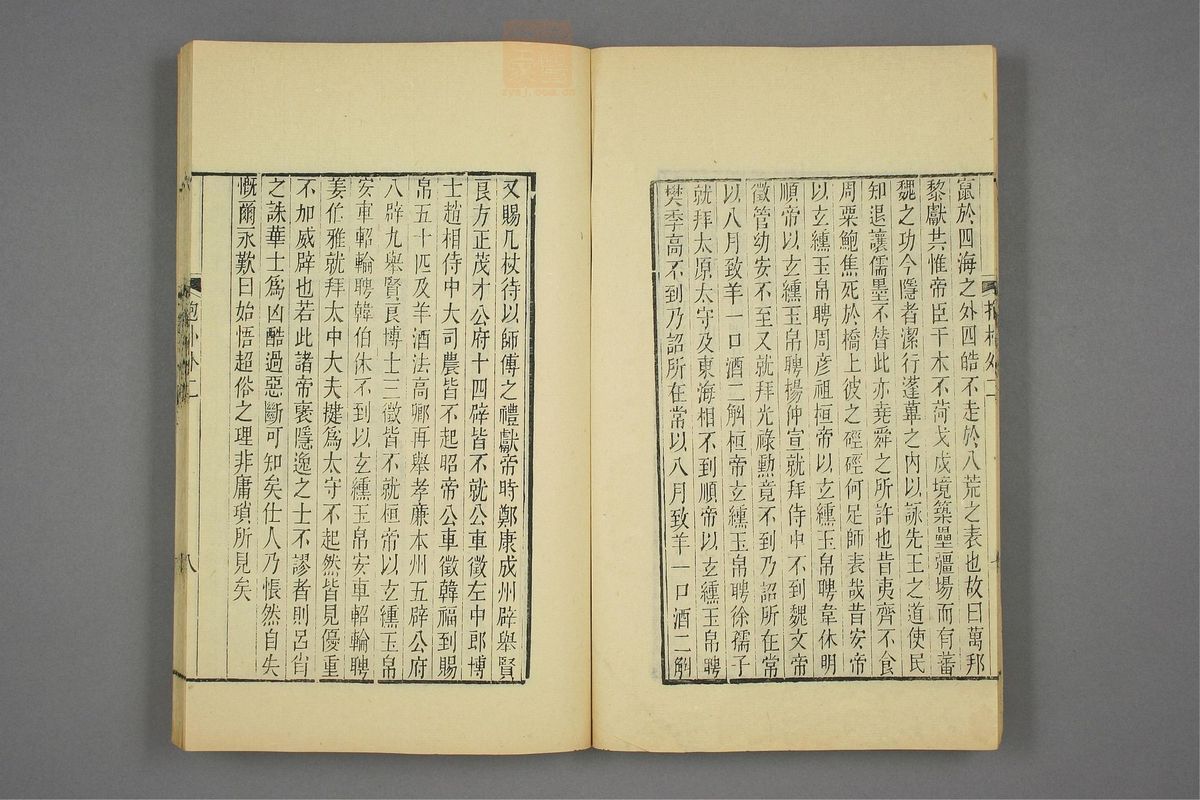 竄於四海之外四皓不走於八荒之表也故曰萬邦
黎獻共惟帝臣干木不荷戈戍境築壘彊場而有蕃
魏之功今隱者潔行蓬蓽之內以詠先王之道使民
知退讓儒墨不替此亦堯舜之所許也昔夷齊不食
周粟鮑焦死於橋上彼之硜硜何足師表哉昔安帝
以玄纁玉帛聘周彥祖桓帝以玄纁玉帛聘韋休明
順帝以玄纁玉帛聘揚仲宣就拜侍中不到魏文帝
徵管幼安不至又就拜光祿勳竟不到乃詔所在常
以八月致羊一口酒二斛桓帝玄纁玉帛聘徐孺子
就拜太原太守及東海相不到順帝以玄纁玉帛聘
樊季高不到乃詔所在常以八月致羊一口酒二斛
又賜几杖待以師傅之禮獻帝時鄭康成州辟舉賢
良方正茂才公府十四辟皆不就公車徵左中郎博
士趙相侍中大司農皆不起昭帝公車徵韓福到賜
帛五十匹及羊酒法高卿再舉孝廉本州五辟公府
八辟九舉賢良博士三徵皆不就桓帝以玄纁玉帛
安車軺輪聘韓伯休不到以玄纁玉帛安車軺輪聘
姜伯雅就拜太中大夫揵為太守不起然皆見優重
不加威辟也若此諸帝褒隱逸之士不謬者則呂尚
之誅華士為凶酷過惡斷可知矣仕人乃悵然自失
慨爾永歎曰始悟超俗之理非庸瑣所見矣
八